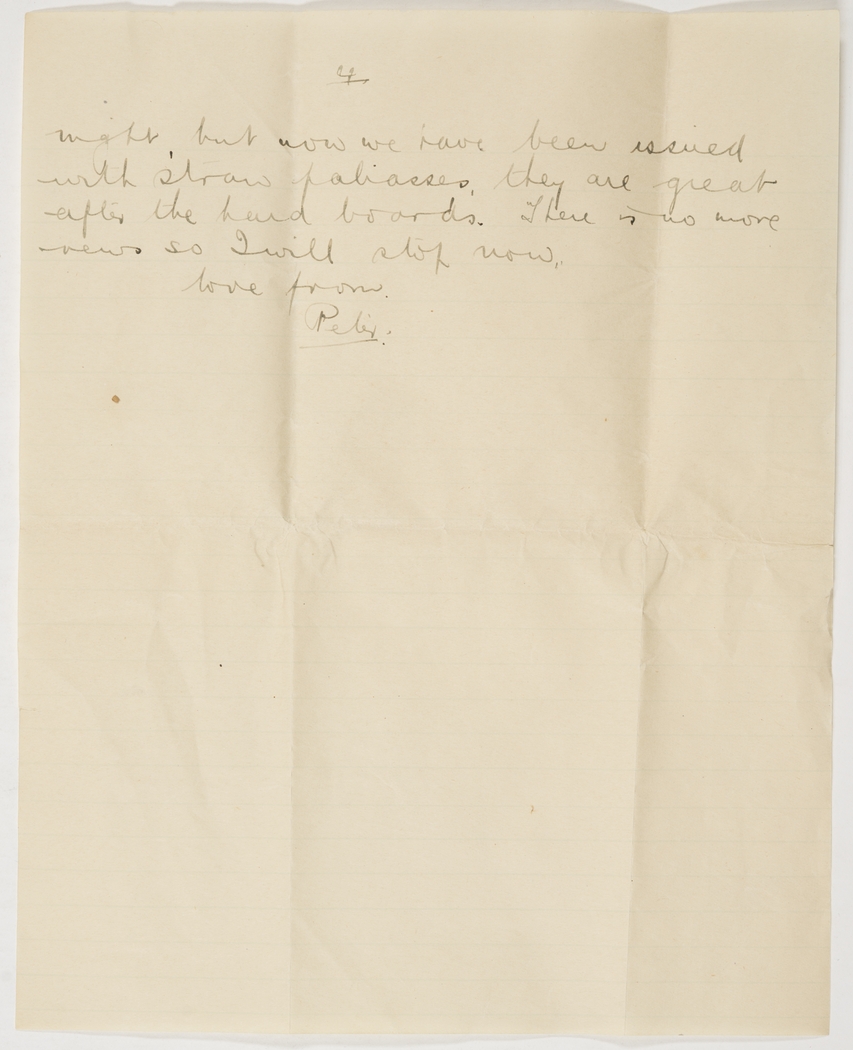 4
night, but now we have been issued
with straw paliasses, they are great
after the hard boards. There is no more
news so I will stop now,
love from.
Peter.